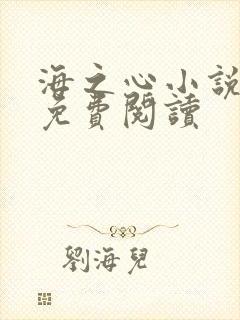 海之心小說
免費閱讀
劉海兒